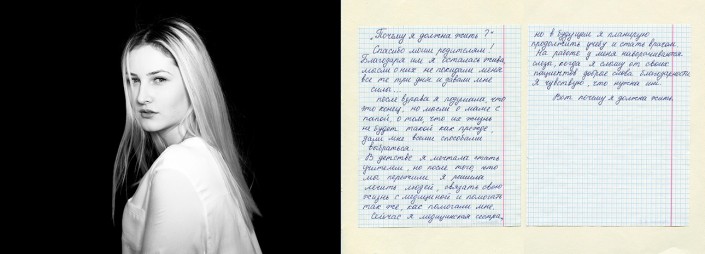 „Почему я должна жить?"
Спасибо моим родителям!
Благодаря им я осталась жива,
мысли о них не покидали меня
все те три дня и давали мне
силы...
после взрыва я подумала, что
это конец, но мысли о маме с
папой, о том, что их жизнь
не будет такой как прежде,
дали мне всеми способами
выбраться.
В детстве я мечтала стать
учителем, но после того, что
мы пережили я решила
лечить людей, связать свою
жизнь с медициной и помогать
так же, как помогали мне.
Сейчас я медицинская сестра,
но в будущем я планирую
продолжить учебу и стать врачом.
На работе у меня наворачиваются
слезы, когда я слышу от своих
пациентов добрые слова благодарности
Я чувствую, что нужна им.
Вот почему я должна жить.